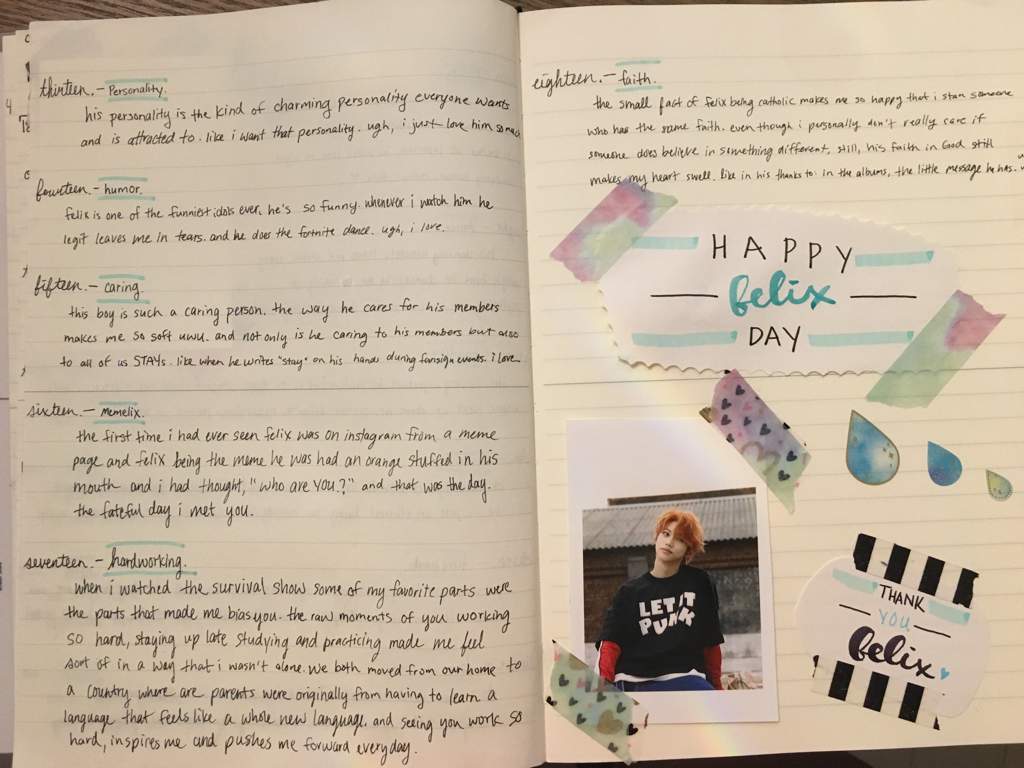 thirteen.- Personality.
his personality is the kind of charming personality everyone wants
and is attracted to. like i want that personality. ugh, i just love him so much
fourteen.- humor.
felix is one of the funniest idols ever. he's so funny. whenever i watch him he
legit leaves me in tears. and he does the fortnite dance. ugh, i love.
fifteen.- caring.
this boy is such a caring person. the way he cares for his members
makes me so soft uwu. and not only is he caring to his members but also
to all of us STAYs. like when he writes "stay" on his hands during fansign events. i love
sixteen.- Memelix.
the first time i had ever seen felix was on instagram from a meme
page and felix being the meme he was had an orange stuffed in his
mouth and i had thought, "who are you?" and that was the day.
the fateful day i met you.
seventeen.- hardworking.
when i watched the survival show some of my favorite parts were
the parts that made me bias you. the raw moments of you working
so hard, staying up late studying and practicing made me feel
sort of in a way that i wasn't alone. we both moved from our home to
a country where are parents were originally from having to learn a
language that feels like a whole new language. and seeing you work so
hard, inspires me and pushes me forward everyday.
eighteen.- faith.
the small fact of felix being catholic makes me so happy that i stan someone
who has the same faith. even though i personally don't really care if
someone does believe in something different, still, his faith in God still
makes my heart swell. like in his thanks to: in the albums, the little message he has.
HAPPY
felix
DAY
LET IT
PUNK
THANK
YOU
felix